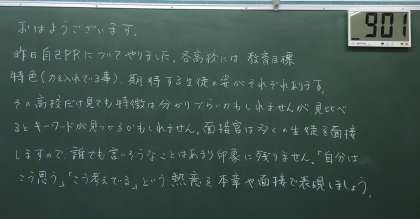 おはようございます。
901
昨日自己PRについてやりました。各高校には教育目標
特色(力を入れている事)、期待する生徒の姿がそれぞれあります。
その高校だけ見ても特徴は分かりづらいかもしれませんが見比べ
るとキーワードが見つかるかもしれません。面接官は多くの生徒を面接
しますので、誰でも言いそうなことはあまり印象に残りません。「自分は
こう思う」「こう考えている」という熱意を本番や面接で表現しましょう。